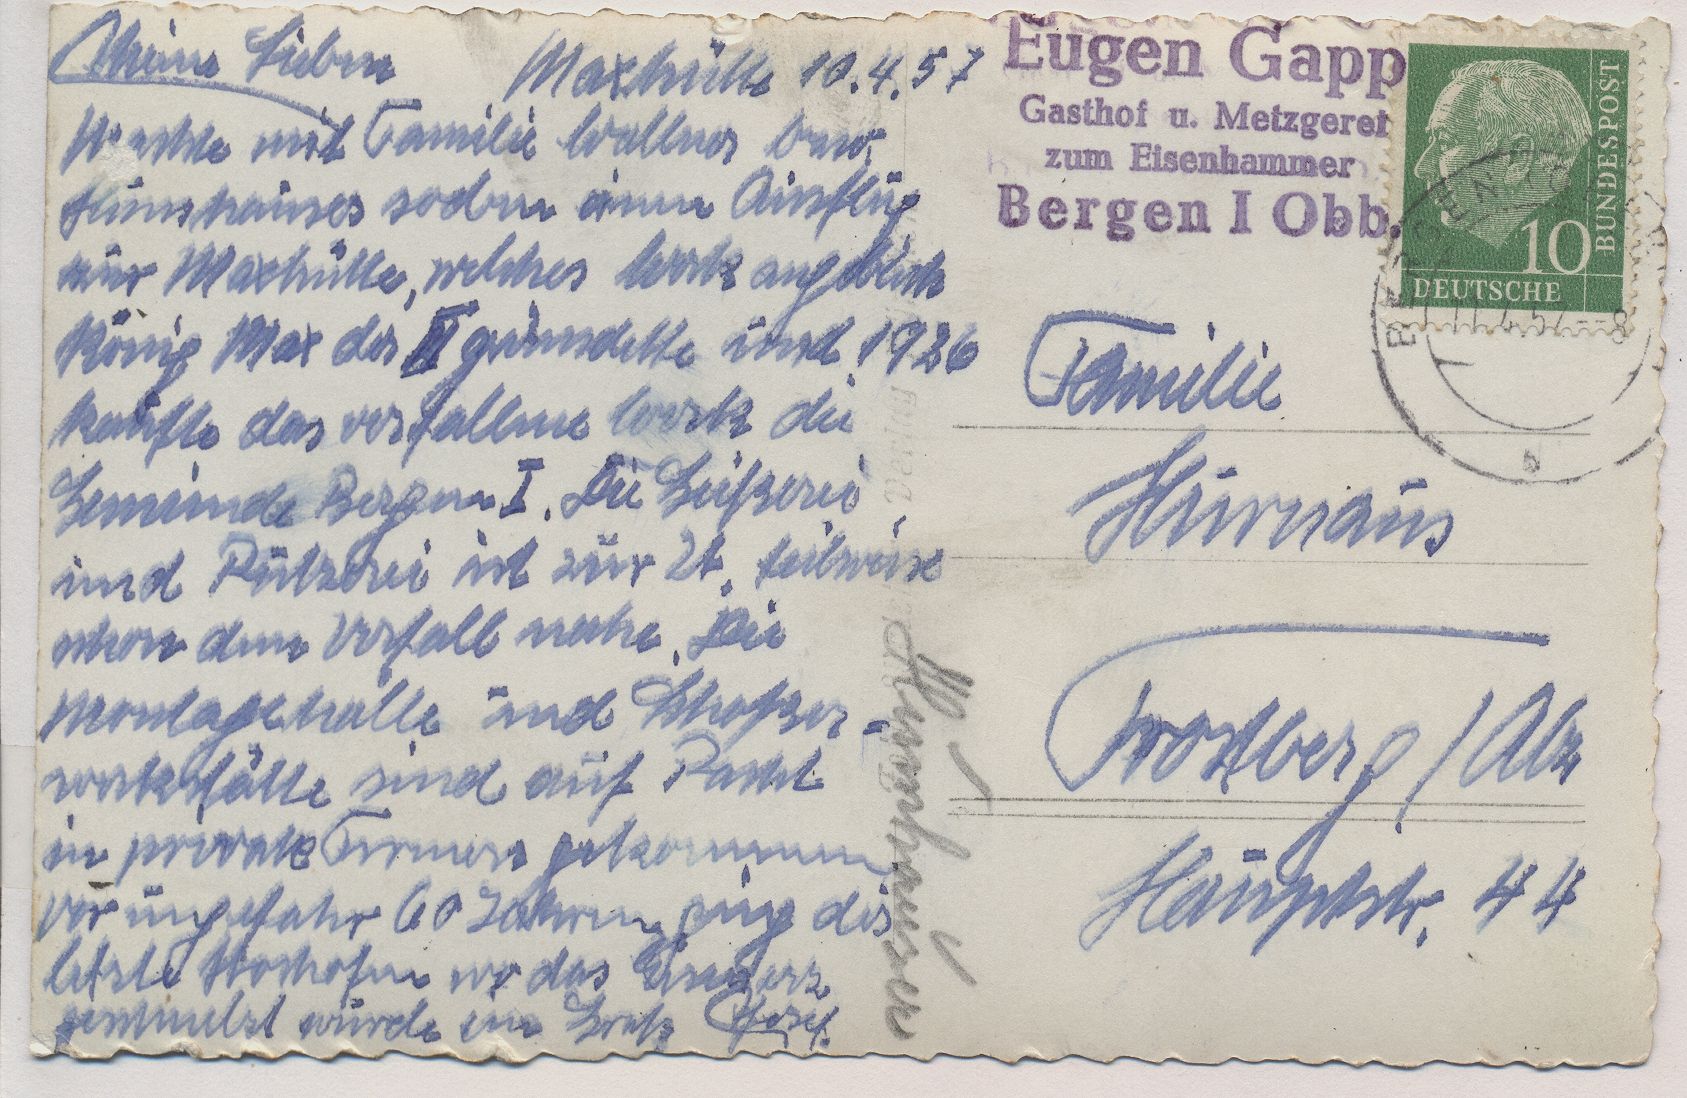 Meine Lieben
Maxhütte 10.4.57
Machte mit Familie Wallner bzw.
soeben einen Ausflug
zur Maxhütte, welches Werk angeblich
König Max der II gründette und 1926
kaufte das verfallene Werk die
Gemeinde Bergen I. Die Gießerei
und Putzerei ist zur Zt. teilweise
schon dem Verfall nahe. Die
Montagehalle und Schlosser-
werkstätte sind auf Pacht
in private Firmen gekommen
vor ungefähr 60 Jahren ging der
letzte Hochofen wo das Eisenerz
geschmelzt wurde ein Gruß Josef.
Eugen Gapp
Gasthof u. Metzgerei
zum Eisenhammer
Bergen I Obb.
10
BUNDESPOST
DEUTSCHE
Familie
Trostberg / Alz
Hauptstr. 44